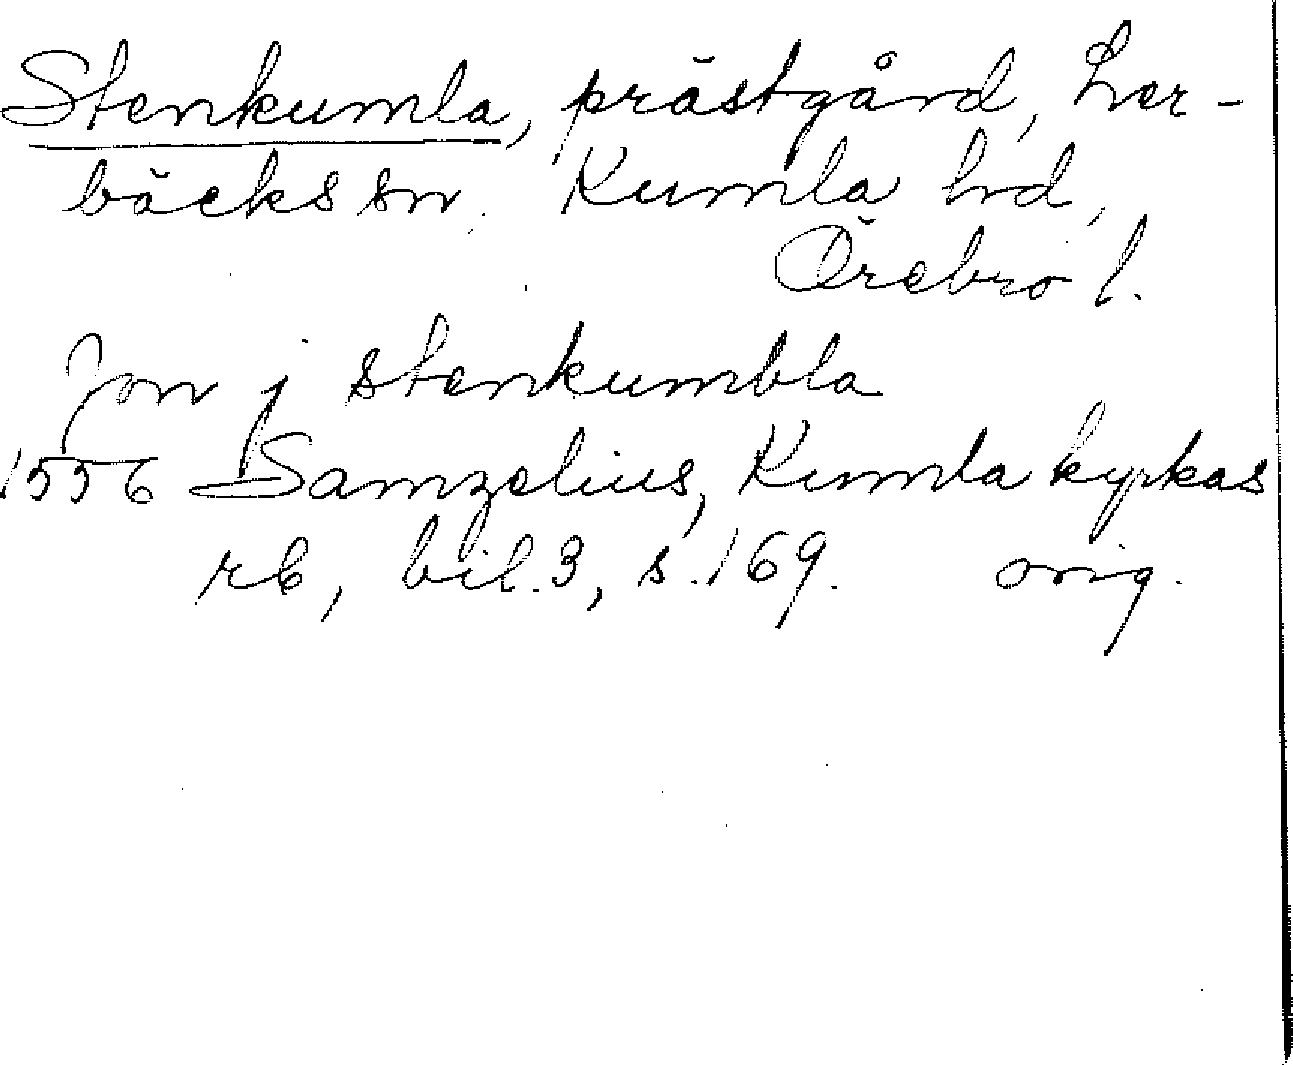 Stenkumla, prästgård, Ler-
bäcks sn. Kumla hd,
Örebro l.
Jon j stenkumbla
1556 Samzelius, Kumla kyrkas
rb, bil. 3, s. 169. orig.